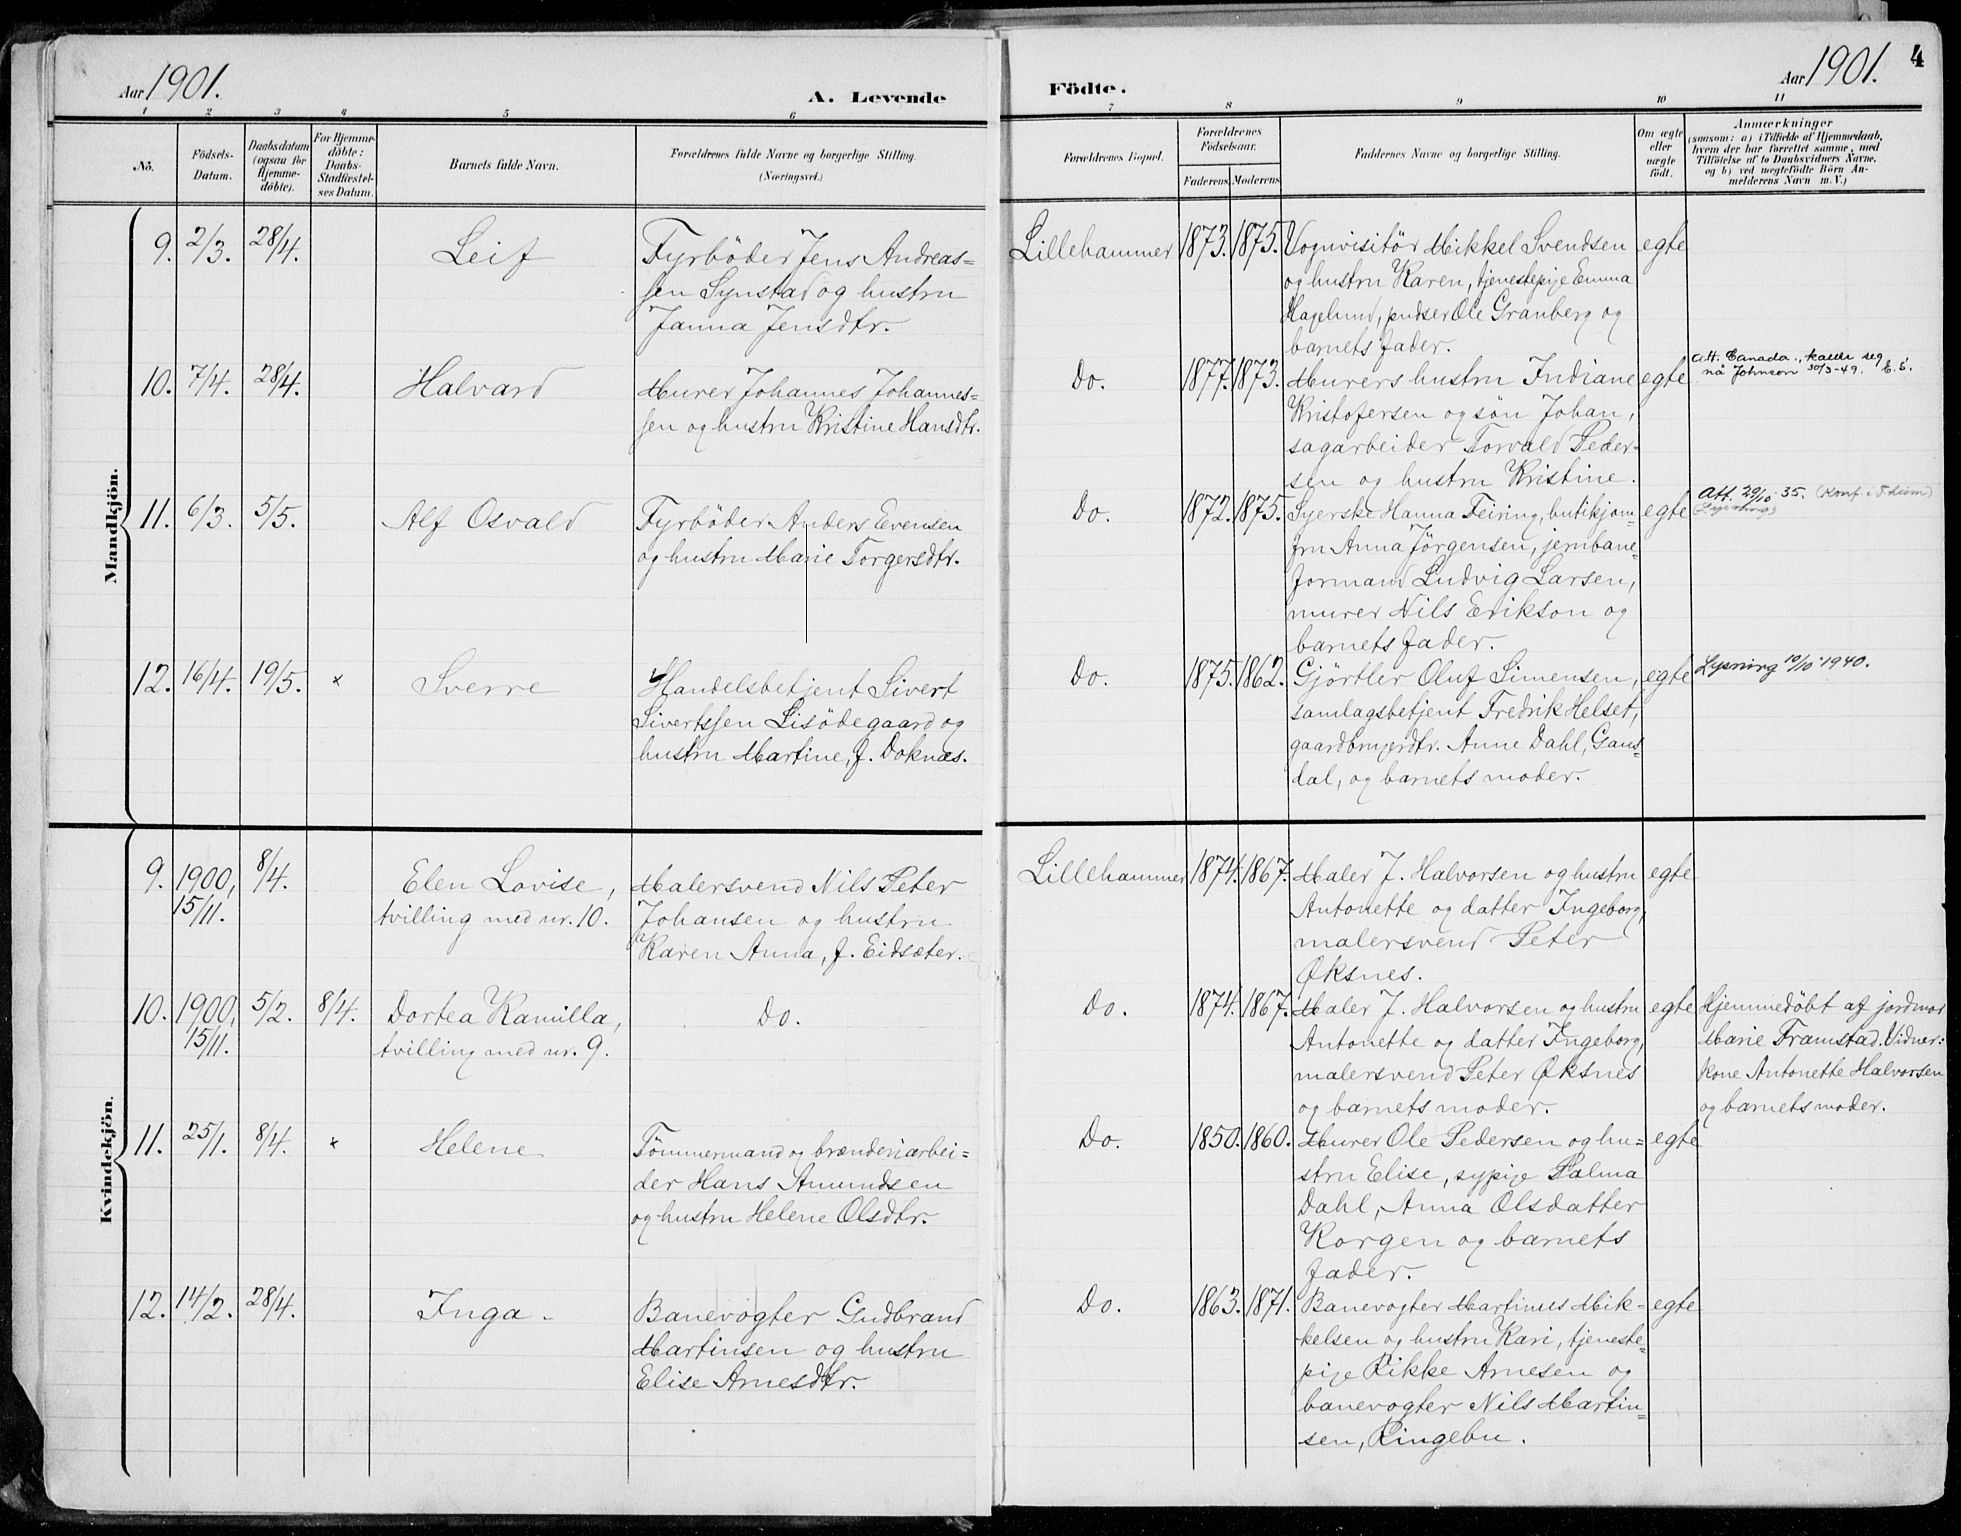 Aar 1901.
A. Levende
Födte.
Aar 1901.
4
1 2 3 4 5 6 7 8 9 10 11
No.
Födsels-
Datum.
Daabsdatum
(ogsaa för
Hjemme-
döbte).
For Hjemme-
döbte:
Daabs-
Stadfæstel-
ses Datum.
Barnets fulde Navn.
Forældrenes fulde Navne og borgerlige Stilling.
(Næringsvei.)
Forældrenes Bopæl.
Forældrenes
Födselsaar.
Faderens. Moderens.
Faddernes Navne og borgerlige Stilling.
Om ægte
eller
uægte
født.
Anmærkninger
(saasom: a) i Tilfælde af Hjemmedaab,
hvem der har forrettet samme, med
Tilföielse af to Daabsvidners Navne.
og b) ved uegtefödte Börn An-
melderens Navn m. V.)
Mandkjön.
9. 2/3. 28/4. Leif
Fyrböder Jens Andreas=
sen Synstad og hustru
Janna Jensdtr.
Lillehammer 1873. 1875.
Vognvisitör Mikkel Svendsen
og hustru Karen, tjenestepije Emma
Hagelund, pudser Ole Granberg og
barnets fader.
egte
10. 7/4. 28/4. Halvard
Murer Johannes Johannes=
sen og hustru Kristine Hansdtr.
Do. 1877. 1873.
Murers hustru Indiane
Kristofersen og søn Johan,
sagarbeider Torvald Peder-
sen og hustru Kristine.
egte
Att. Canada., kaller seg
nå Johnson 30/3-49. E.S.
11. 6/3. 5/5. Alf Osvald
Fyrböder Anders Evensen
og hustru Marie Torgersdtr.
Do. 1872. 1875.
Syerske Hanna Feiring, butikjom=
fru Anna Jørgensen, jernbane=
formand Ludvig Larsen,
murer Nils Erikson og
barnets fader.
egte
Att. 29/10-35.
12. 16/4. 19/5. x Sverre
Handelsbetjent Sivert
Sivertssen Lisödegaard og
hustru Martine, f. Doknæs.
Do. 1875. 1862.
Gjörtler Oluf Simensen,
samlagsbetjent Fredrik Helset,
gaardbrugerdtr. Anne Dahl, Gaus=
dal, og barnets moder.
egte
Lysning 10/10 1940.
Kvindekjön.
9. 1900, 15/11. 8/4. Elen Lovise,
tvilling med nr. 10.
Malersvend Nils Peter
Johansen og hustru
Karen Anna, f. Eidsæter.
Lillehammer 1874. 1867.
Maler J. Halvorsen og hustru
Antonette og datter Ingeborg,
malersvend Peter
Øksnes.
egte
10. 1900, 15/11. 5/2. 8/4. Dortea Kamilla,
tvilling med nr. 9.
Do.
Do. 1874. 1867.
Maler J. Halvorsen og hustru
Antonette og datter Ingeborg,
malersvend Peter Øksnes
og barnets moder.
egte
Hjemmedöbt af jordmor
Marie Framstad. Vidner:
kone Antonette Halvorsen
og barnets moder.
11. 25/1. 8/4. x Helene
Tömmermand og brænderiarbei=
der Hans Amundsen
og hustru Helene Olsdtr.
Do. 1850. 1860.
Murer Ole Pedersen og hu=
stru Elise, sypije Palma
Dahl, Anna Olsdatter
Korgen og barnets
fader.
egte
12. 14/2. 28/4. Inga.
Banevogter Gudbrand
Martinsen og hustru
Elise Arnesdtr.
Do. 1863. 1871.
Banevogter Martinus Mik-
kelsen og hustru Kari, tjeneste=
pije Rikke Arnesen og
banevogter Nils Martin=
sen, Ringebu.
egte